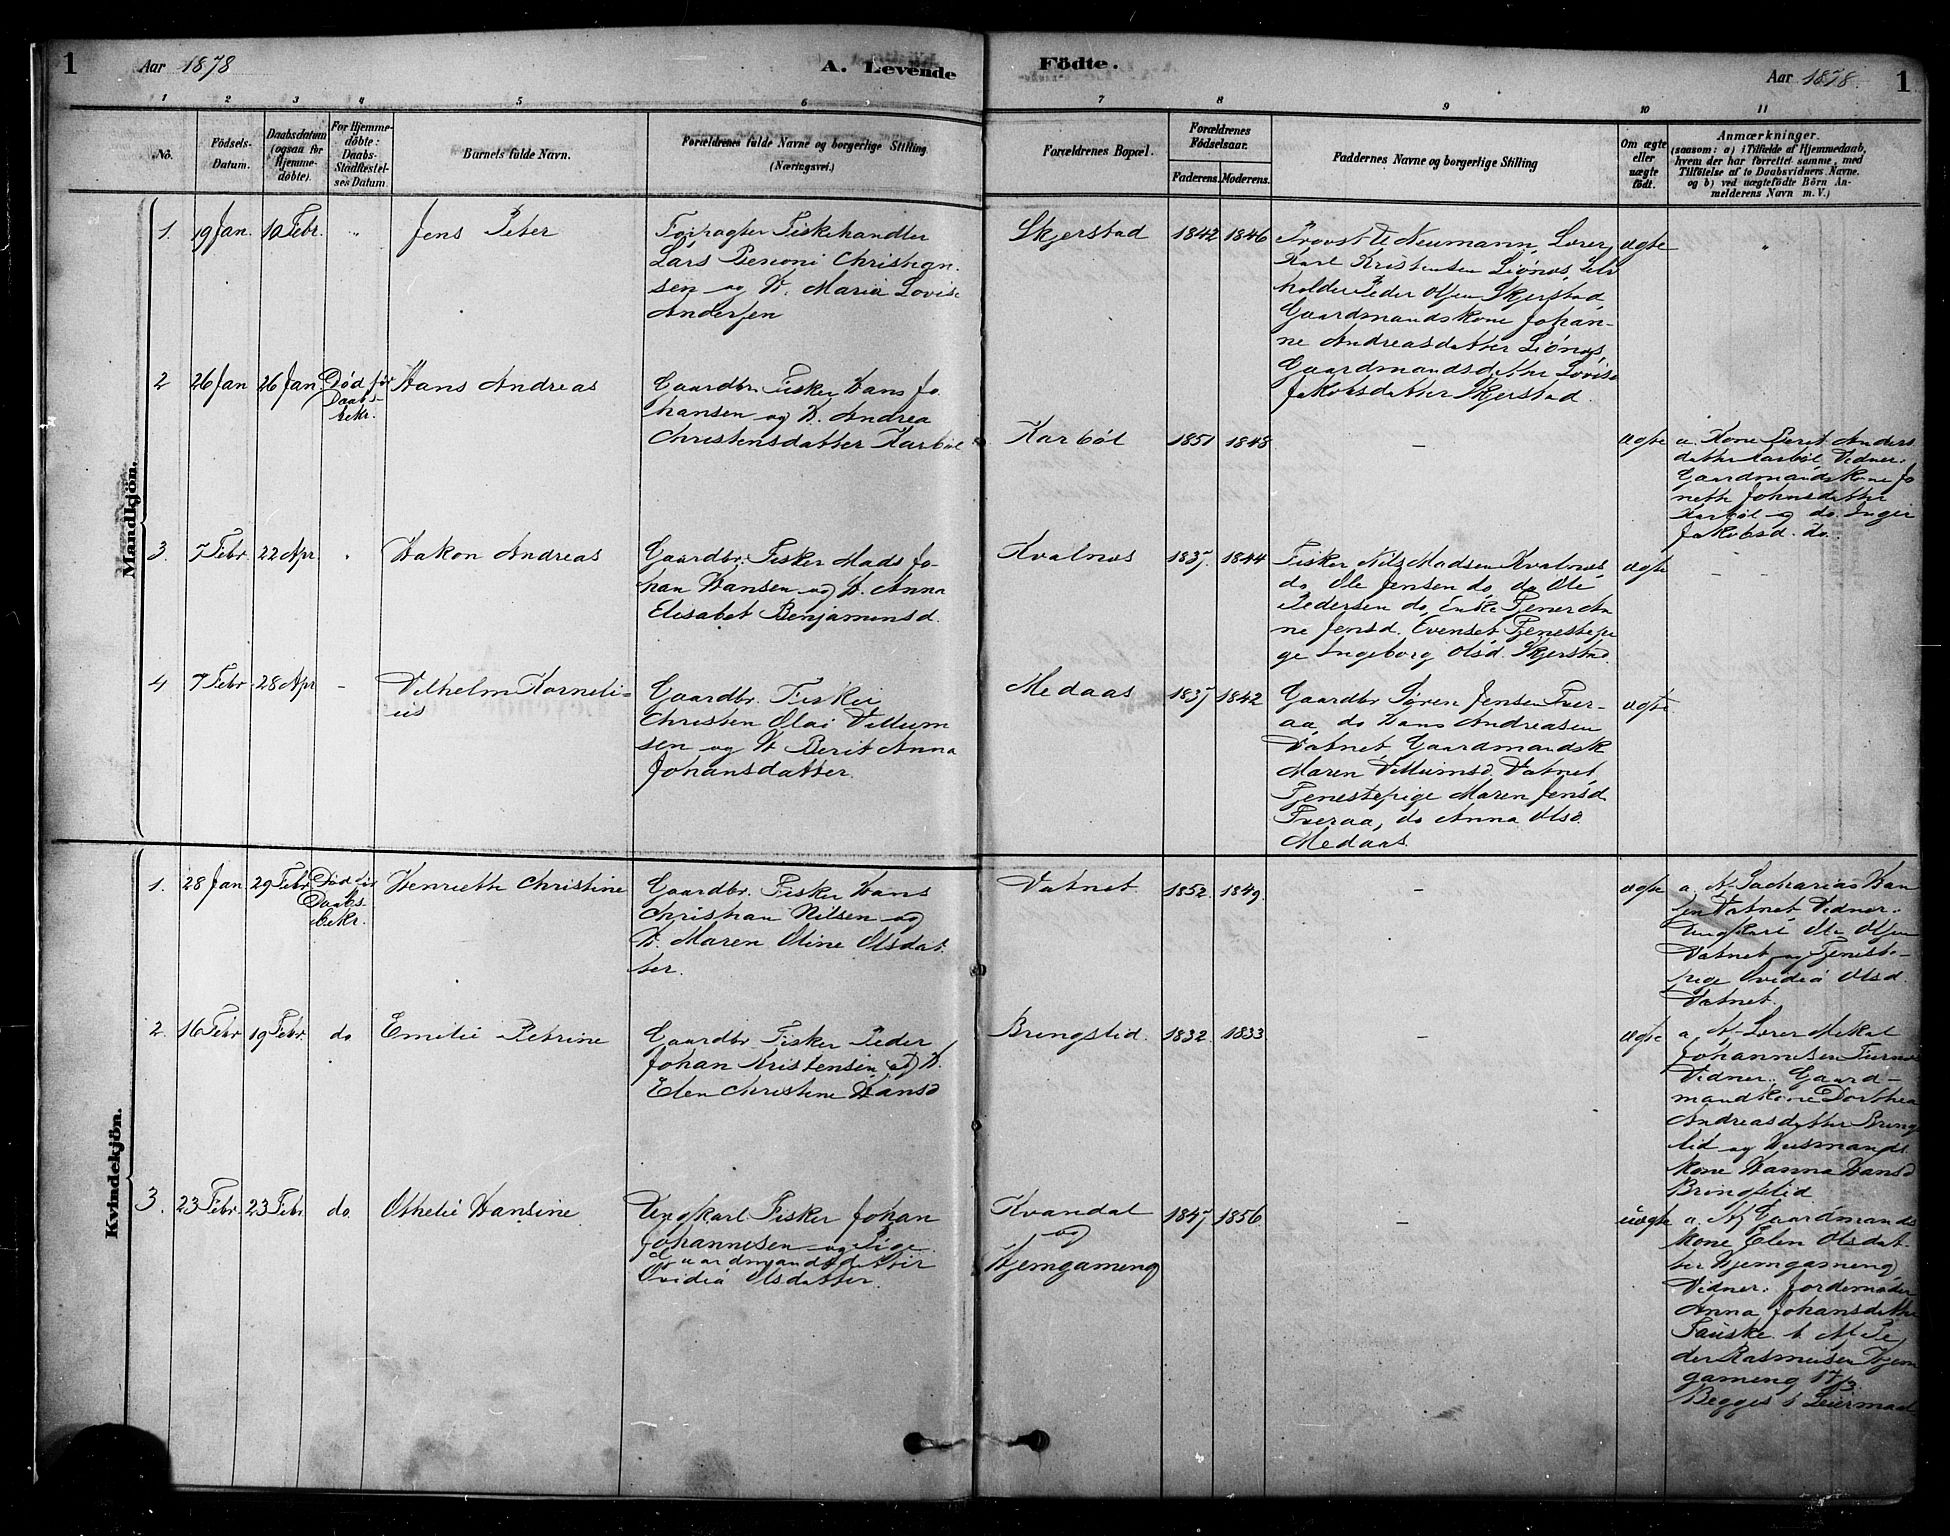 1 Aar 1878 A. Levende Födte. Aar 1878. 1
1 2 3 4 5 6 7 8 9 10 11
No.
Födsels-
Datum.
Daabsdatum
(ogsaa for
Hjemme-
döbte).
For Hjemme-
döbte:
Daabs-
Stadfæstel-
ses Datum.
Barnets fulde Navn.
Forældrenes fulde Navne og borgerlige Stilling
(Næringsvei.)
Forældrenes Bopæl.
Forældrenes
Födselsaar.
Faderens. Moderens.
Faddernes Navne og borgerlige Stilling
Om ægte
eller
uægte
födt.
Anmærkninger.
(saasom: a) i Tilfælde af Hjemmedaab,
hvem der har forrettet samme, med
Tilföielse af to Daabsvidners Navne.
og b) ved uægtefödte Börn An-
melderens Navn m. V.)
Mandkjön.
1. 19 Jan. 10 Febr. " Jens Peter
Forpagter Fiskehandler
Lars Benoni Christian-
sen og H. Maria Lovise
Andersen
Skjerstad 1842 1846
Provst Neumann, Lærer
Karl Kristensen Liönæs,
holder Peder Olsen Skjerstad,
Gaardmandskone Johan-
ne Andreasdatter Liönæs,
Gaardmandsdatter Lovise
Jakobsdatter Skjerstad.
ægte "
2 26 Jan 26 Jan Död før
Daabs-
bekr.
Hans Andreas
Gaardbr. Fisker Hans Jo-
hansen og H. Andrea
Christensdatter Karböl
Karböl 1851 1848 - ægte
a. Kone Berit Anders
datter Karböl Vidner:
Gaardmandskone Jo
nette Johnsdatter
Karböl og do. Inger
Jakobsd. do.
3. 7 Febr. 22 Apr. " Hakon Andreas
Gaardbr. Fisker Mads Jo-
han Hansen og H. Anna
Elisabet Benjaminsd.
Kvalnæs 1837. 1844
Fisker Nils Madsen Kvalnæs
do Ole Jensen do, do Ole
Pedersen do, Enke Tjener An
ne Jensd. Evenset, Tjenestepi
ge Ingeborg Olsd. Skjerstad.
ægte - -
4 7 Febr. 28 Apr. - Vilhelm Korneli-
us
Gaardbr. Fisker
Christen Olai Villum
sen og H. Berit Anna
Johansdatter.
Medaas 1837 1842
Gaardbr Sören Jensen Tver-
aa, do Hans Andreasen
Vatnet, Gaardmandsk.
Maren Villumsd. Vatnet,
Tjenestepige Maren Jensd.
Tveraa, do Anna Olsd.
Medaas
ægte
Kvindekjön.
1. 28 Jan 29 Febr. Död før
Daabs-
bekr.
Henriette Christine
Gaardbr. Fisker Hans
Christian Nilsen og
H. Maren Oline Olsdat-
ter.
Vatnet 1852. 1849. - ægte
a. Af Sacharias Han
sen Vatnet Vidner:
Ungkarl Ole Olsen
Vatnet og Tjeneste-
pige Ovidia Olsd.
Vatnet.
2. 16 Febr. 19 Febr. do Emilie Petrine
Gaardbr. Fisker Peder
Johan Kristensen og H.
Elen Christine Hansd
Bringslid. 1832. 1833 - ægte
a. Af Lærer Mikal
Johannesen
Vidner: Gaard-
mandskone Dorthea
Andreasdatter Brings
lid og Husmands
kone Hanna Hansd
Bringslid
3. 23 Febr. 23 Febr. do Othelie Hansine
Ungkarl Fisker Johan
Johannesen og Pige
Gaardmandsdatter
Ovidia Olsdatter.
Kvandal
og
Hjemgameng
1847 1856. - uægte
a. Af Gaardmands
kone Elen Olsdat-
ter Hjemgameng
Vidner: Jordemoder
Anna Johansdatter
Fauske. b. Af Pe
der Rasmusen Hjem
gameng 17/3.
Begges 1 Leiermaal